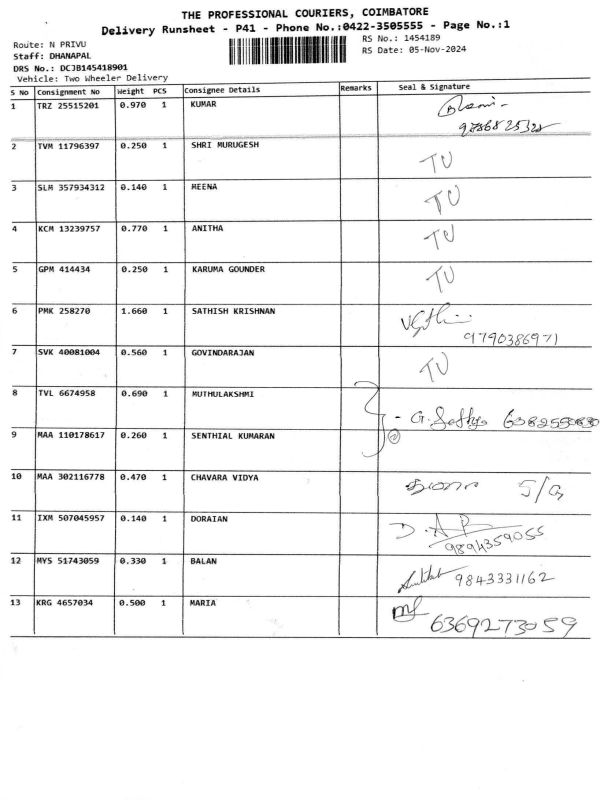 THE PROFESSIONAL COURIERS, COIMBATORE
Delivery Runsheet - P41 - Phone No.:0422-3505555 - Page No.:1
Route: N PRIVU
RS No.: 1454189
Staff: DHANAPAL
RS Date: 05-Nov-2024
DRS No.: DCJB145418901
Vehicle: Two Wheeler Delivery
S No Consignment No Weight PCS Consignee Details Remarks Seal & Signature
1 TRZ 25515201 0.970 1 KUMAR
2 TVM 11796397 0.250 1 SHRI MURUGESH TU
3 SLM 357934312 0.140 1 MEENA TU
4 KCM 13239757 0.770 1 ANITHA TU
5 GPM 414434 0.250 1 KARUMA GOUNDER TU
6 PMK 258270 1.660 1 SATHISH KRISHNAN
9790386971
7 SVK 40081004 0.560 1 GOVINDARAJAN TU
8 TVL 6674958 0.690 1 MUTHULAKSHMI
9 MAA 110178617 0.260 1 SENTHIAL KUMARAN
10 MAA 302116778 0.470 1 CHAVARA VIDYA
11 IXM 507045957 0.140 1 DORAIAN
9894359055
12 MYS 51743059 0.330 1 BALAN 9843331162
13 KRG 4657034 0.500 1 MARIA
6369273059